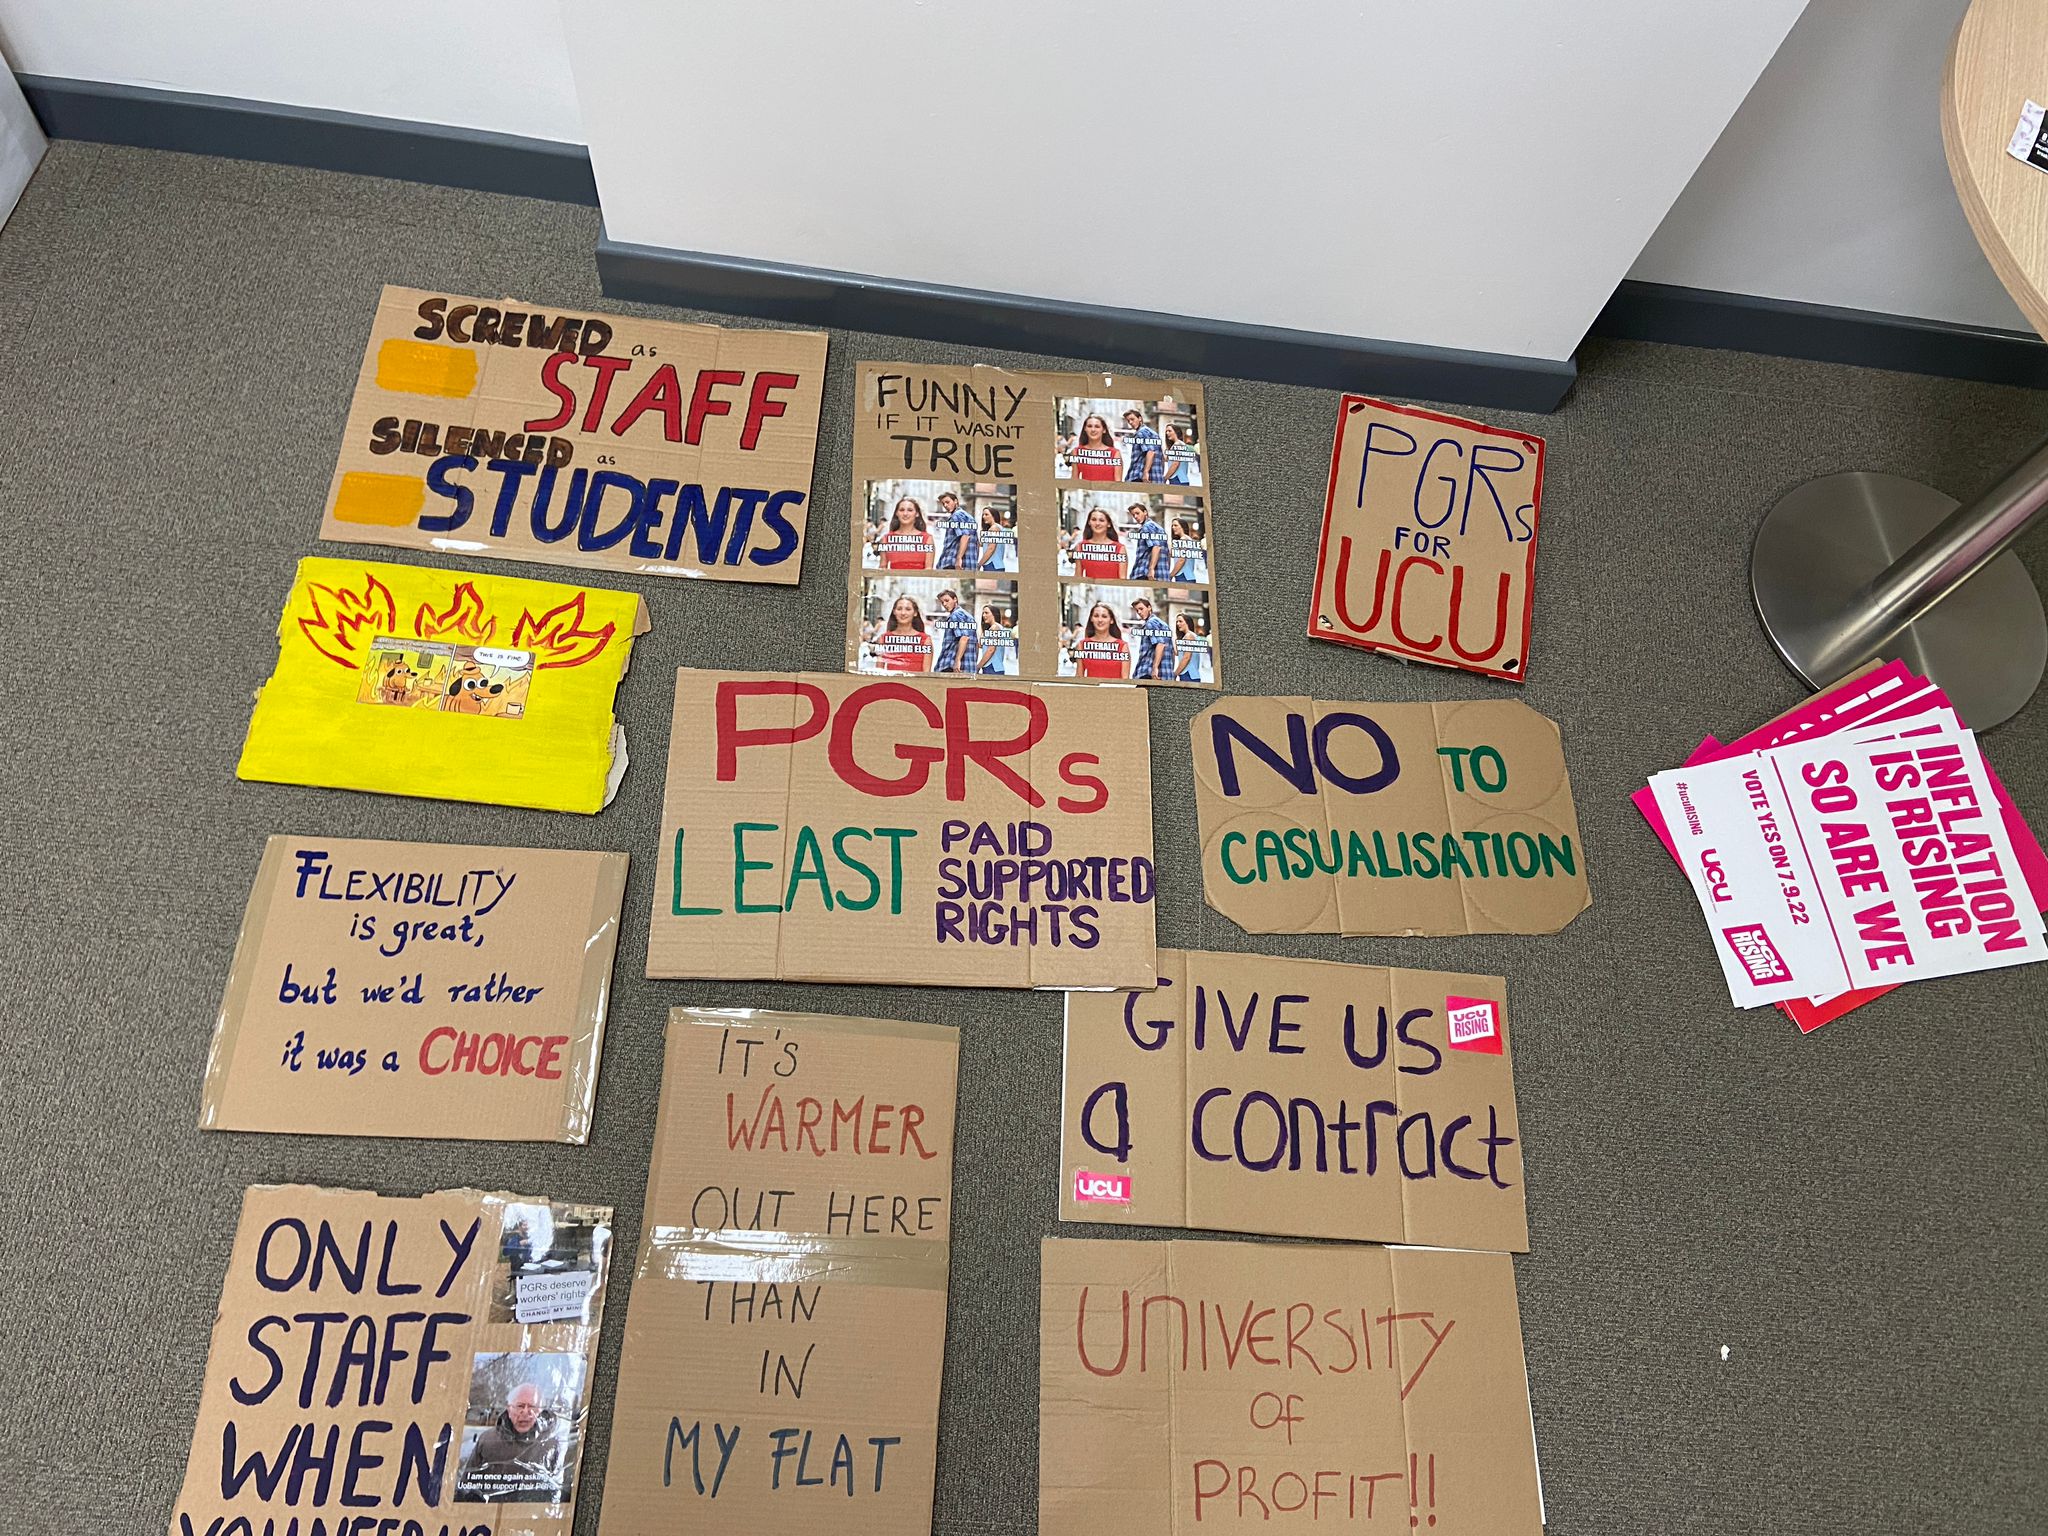 SCREWED as
STAFF
SILENCED as
STUDENTS
FUNNY
IF IT WASN'T
TRUE
LITERALLY
ANYTHING ELSE
UNI OF BATH
STAFF
AND STUDENT
WELLBEING
LITERALLY
ANYTHING ELSE
UNI OF BATH
PERMANENT
CONTRACTS
LITERALLY
ANYTHING ELSE
UNI OF BATH
STABLE
INCOME
LITERALLY
ANYTHING ELSE
UNI OF BATH
DECENT
PENSIONS
LITERALLY
ANYTHING ELSE
UNI OF BATH
SUSTAINABLE
WORKLOADS
PGRs
FOR
UCU
THIS IS FINE.
PGRs
LEAST
PAID
SUPPORTED
RIGHTS
NO TO
CASUALISATION
INFLATION
IS RISING
SO ARE WE
VOTE YES ON 7.9.22
#ucuRISING
UCU
UCU
RISING
FLEXIBILITY
is great,
but we'd rather
it was a CHOICE
IT'S
WARMER
OUT HERE
THAN
IN
MY FLAT
GIVE US
a contract
UCU
RISING
ucu
ONLY
STAFF
WHEN
YOU NEED US
PGRs deserve
workers' rights
CHANGE MY MIND
I am once again asking
UoBath to support their
UNIVERSITY
OF
PROFIT!!